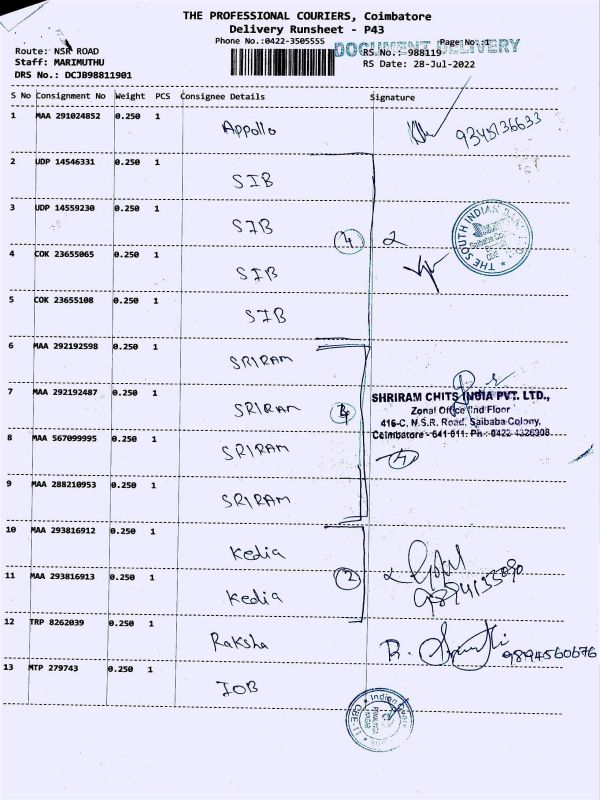 THE PROFESSIONAL COURIERS, Coimbatore
Delivery Runsheet - P43
Phone No.:0422-3505555
Page No.:1
DOCUMENT DELIVERY
Route: NSR ROAD
RS No.: 988119
Staff: MARIMUTHU
RS Date: 28-Jul-2022
DRS No.: DCJB98811901
S No Consignment No Weight PCS Consignee Details Signature
1 MAA 291024852 0.250 1 Appollo 9345136633
2 UDP 14546331 0.250 1 SIB
3 UDP 14559230 0.250 1 SIB
4
THE SOUTH INDIAN
Saibaba
4 COK 23655065 0.250 1 SIB
5 COK 23655108 0.250 1 SIB
6 MAA 292192598 0.250 1 SRIRAM
7 MAA 292192487 0.250 1 SRIRAM
SHRIRAM CHITS INDIA PVT. LTD.,
Zonal Office IInd Floor
416-C, N.S.R. Road, Saibaba Colony,
Coimbatore - 641 011. Ph : 0422-4326908
8 MAA 567099995 0.250 1 SRIRAM
4
9 MAA 288210953 0.250 1 SRIRAM
10 MAA 293816912 0.250 1 Kedia
2
11 MAA 293816913 0.250 1 Kedia
12 TRP 8262039 0.250 1 Raksha 9894560676
13 MTP 279743 0.250 1 IOB
Indian Overs
CBE-11